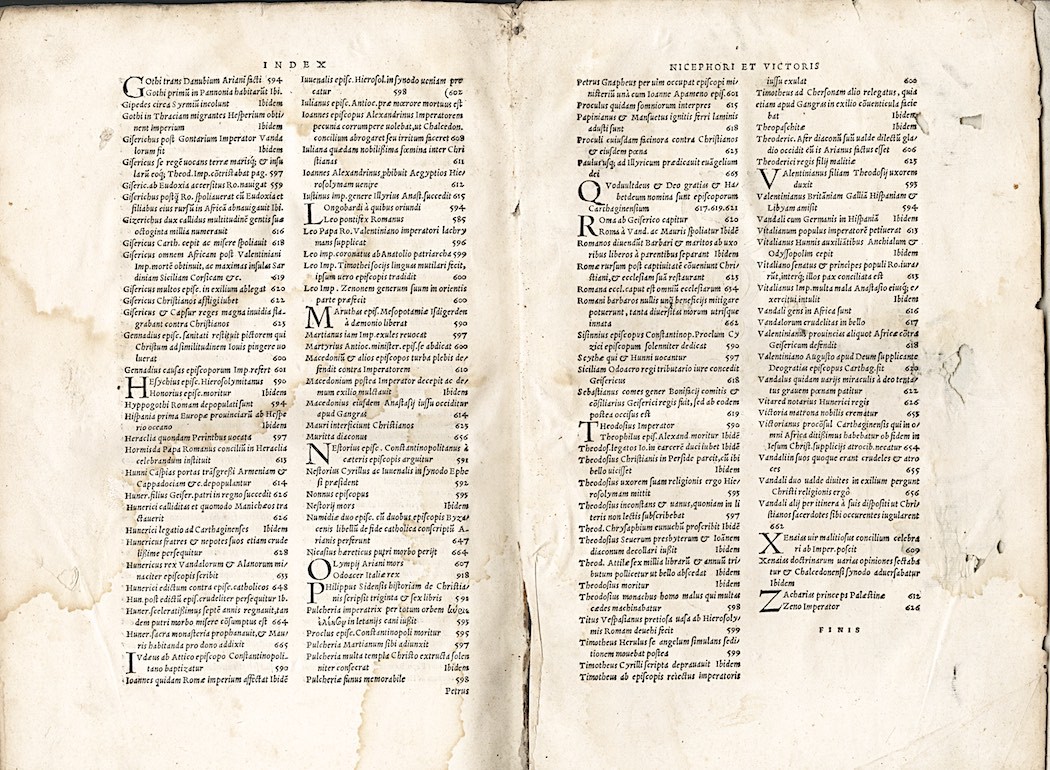 INDEX
Gothi trans Danubium Ariani facti 594
Gothi primũ in Pannonia habitarũt Ibi.
Gipedes circa Syrmiũ incolunt Ibidem
Gothi in Thraciam migrantes Hesperium obti-
nent imperium Ibidem
Giserichus post Gontarium Imperator Vanda
lorum fit Ibidem
Gisericus se regẽ uocans terræ marisq; & insu
larũ eoq; Theod. Imp. cõtristabat pag. 597
Giseric. ab Eudoxia accersitus Ro. nauigat 559
Gisericus postq̃ Ro. spoliauerat cũ Eudoxia et
filiabus eius rursũ in Africã abnauigauit Ibi.
Gizerichus dux callidus multitudinẽ gentis suæ
octoginta millia numerauit 616
Gisericus Carth. cepit ac misere spoliauit 618
Gisericus omnem Africam post Valentiniani
Imp. mortẽ obtinuit, ac maximas insulas Sar
diniam Siciliam Corsicam &c. 619
Gisericus multos episc. in exilium ablegat 620
Gisericus Christianos affligi iubet 622
Gisericus & Capsur reges magna inuidia fla-
grabant contra Christianos 625
Gennadius episc. sanitati restituit pictorem qui
Christum ad similitudinem Iouis pingere uo
luerat 600
Gennadius causas episcoporum Imp. refert 601
HEsychius episc. Hierosolymitanus 590
Honorius episc. moritur Ibidem
Hyppogothi Romam depopulati sunt 594
Hispania prima Europæ prouinciarũ ab Hespe
rio oceano Ibidem
Heraclia quondam Perinthus uocata 597
Hormisda Papa Romanus conciliũ in Heraclia
celebrandum instituit 613
Hunni Caspias portas trãsgressi Armeniam &
Cappadociam & c. depopulantur 614
Huner. filius Geiser. patri in regno succedit 626
Hunerici calliditas et quomodo Manichæos tra
ctauerit 626
Hunerici legatio ad Carthaginenses Ibidem
Hunericus fratres & nepotes suos etiam crude
lissime persequitur 628
Hunericus rex Vandalorum & Alanorum mi-
naciter episcopis scribit 633
Hunerici edictum contra episc. catholicos 648
Hun. post edictũ episc. crudeliter persequitur Ib.
Huner. sceleratissimus septẽ annis regnauit, tan
dem putri morbo misere cõsumptus est 664
Huner. sacra monasteria prophanauit, & Mau
ris habitanda pro dono addixit 665
IVdæus ab Attico episcopo Constantinopoli-
tano baptizatur 590
Ioannes quidam Romæ imperium affectat Ibidẽ
Iuuenalis episc. Hierosol. in synodo ueniam pre
catur 598 (602
Iulianus episc. Antioc. præ mœrore mortuus est
Ioannes episcopus Alexandrinus Imperatorem
pecunia corrumpere uolebat, ut Chalcedon.
concilium abrogaret seu irritum faceret 608
Iuliana quædam nobilissima fœmina inter Chri
stianas 611
Ioannes Alexandrinus phibuit Aegyptios Hie-
rosolymam uenire 612
Iustinus imp. genere Illyrius Anast. succedit 615
LOngobardi à quibus oriundi 594
Leo pontifex Romanus 585
Leo Papa Ro. Valentiniano imperatori lachry
mans supplicat 596
Leo imp. coronatus ab Anatolio patriarcha 599
Leo Imp. Timothei socijs linguas mutilari fecit,
ipsum uero episcopis tradidit 600
Leo Imp. Zenonem generum suum in orientis
parte præfecit 600
MAruthas episc. Mesopotamiæ Isdigerden
à dæmonio liberat 590
Martianus iam Imp. exules reuocat 597
Martyrius Antioc. minister. episc. se abdicat 600
Macedoniũ & alios episcopos turba plebis de-
fendit contra Imperatorem 610
Macedonium postea Imperator decepit ac de-
mum exilio mulctauit Ibidem
Macedonius eiusdem Anastasij iussu occiditur
apud Gangras 614
Mauri interficiunt Christianos 625
Muritta diaconus 656
NEstorius episc. Constantinopolitanus à
cæteris episcopis arguitur 591
Nestorius Cyrillus ac Iuuenalis in synodo Ephe
si præsident 592
Nonnus episcopus 595
Nestorij mors Ibidem
Numidiæ duo episc. cũ duobus episcopis Byza
cenis libellũ de fide catholica conscriptũ A-
rianis perferunt 647
Nicasius hæreticus putri morbo perijt 664
OLympij Ariani mors 607
Odoacer Italiæ rex 918
PHilippus Sidensis historiam de Christia-
nis scripsit triginta & sex libris 591
Pulcheria imperatrix per totum orbem
in letanijs cani iussit 593
Proclus episc. Constantinopoli moritur 595
Pulcheria Martianum sibi adiunxit 597
Pulcheria multa templa Christo extructa solen
niter consecrat Ibidem
Pulcheriæ funus memorabile 598
Petrus
NICEPHORI ET VICTORIS
Petrus Gnapheus per uim occupat episcopi mi-
nisteriũ unà cum Ioanne Apameno epis. 601
Proculus quidam somniorum interpres 615
Papinianus & Mansuetus ignitis ferri laminis
adusti sunt 618
Proculi eiusdam facinora contra Christianos
& eiusdem pœna 623
Paulus usq; ad Illyricum prædicauit euãgelium
dei 663
QVoduultdeus & Deo gratias & Ha-
betdeum nomina sunt episcoporum
Carthaginensium 617.619.621
ROma ab Geiserico capitur 610
Roma à Vand. ac Mauris spoliatur Ibidẽ
Romanos diuendũt Barbari & maritos ab uxo
ribus liberos à parentibus separant Ibidem
Romæ rursum post captiuitatẽ cõueniunt Chri-
stiani, et ecclesiam suã restaurant 625
Romana eccl. caput est omniũ ecclesiarum 634
Romani barbaros nullis unq̃ beneficijs mitigare
potuerunt, tanta diuersitas morum utrisque
innata 662
Sisinnius episcopus Constantinop. Proclum Cy
zici episcopum solenniter dedicat 590
Scythæ qui & Hunni uocantur 597
Siciliam Odoacro regi tributario iure concedit
Geisericus 618
Sebastianus comes gener Bonifacij comitis &
cõsiliarius Geiserici regis fuit, sed ab eodem
postea occisus est 619
THeodosius Imperator 590
Theophilus epis. Alexand moritur Ibidẽ
Theodos. legatos Io. in carcerẽ duci iubet Ibidẽ
Theodosius Christianis in Perside parcit, cũ ibi
bello uicisset Ibidem
Theodosius uxorem suam religionis ergo Hie-
rosolymam mittit 595
Theodosius inconstans & uanus, quoniam in li
teris non lectis subscribebat 597
Theod. Chrysaphium eunuchũ proscribit Ibidẽ
Theodosius Seuerum presbyterum & Ioannem
diaconum decollari iussit Ibidem
Theod. Attilæ sex millia librarũ & annuũ tri-
butum pollicetur ut bello abscedat Ibidem
Theodosius moritur Ibidem
Theodosius monachus homo malus qui multas
cædes machinabatur 598
Titus Vespasianus pretiosa uasa ab Hierosoly-
mis Romam deuehi fecit 599
Timotheus Herulus se angelum simulans sedi-
tionem mouebat postea 599
Timotheus Cyrilli scripta deprauauit Ibidem
Timotheus ab episcopis reiectus imperatoris
iussu exulat 600
Timotheus ad Chersonam alio relegatus, quia
etiam apud Gangras in exilio cõuenticula facie
bat Ibidem
Theopaschitæ Ibidem
Theoderic. Afer diaconũ suũ ualde dilectũ gla-
dio occidit eũ is Arianus factus esset 606
Theoderici regis filij malitiæ 625
VAlentinianus filiam Theodosij uxorem
duxit 593
Valentinianus Britãniam Galliã Hispaniam &
Libyam amisit 594
Vandali cum Germanis in Hispaniã Ibidem
Vitalianum populus imperatorẽ petiuerat 613
Vitalianus Hunnis auxiliatibus Anchialum &
Odyssopolim cepit Ibidem
Vitaliano senatus & principes populi Ro. iura-
rũt, interq; illos pax conciliata est 613
Vitalianus Imp. multa mala Anastasio eiusq; e-
xercitui intulit Ibidem
Vandali gens in Africa sunt 616
Vandalorum crudelitas in bello 617
Valentinianus prouincias aliquot Africæ cõtra
Geisericum defendit 618
Valentiniano Augusto apud Deum supplicante
Deogratias episcopus Carthag. fit
Vandalus quidam uarijs miraculis à deo tenta-
tus grauem pœnam patitur 622
Vitared notarius Hunerici regis 626
Victoria matrona nobilis crematur 655
Victorianus procõsul Carthaginensis qui in o-
mni Africa ditissimus habebatur ob fidem in
Iesum Christ. supplicijs atrocib. necatur 654
Vandali in suos quoque erant crudeles & atro
ces 655
Vandali duo ualde diuites in exilium pergunt
Christi religionis ergò 656
Vandali alij per itinera à suis dispositi ut Chri
stianos sacerdotes sibi occurentes iugularent
662
XEnaias uir malitiosus concilium celebra
ri ab Imper. poscit 609
Xenaias doctrinarum uarias opiniones sectaba
tur & Chalcedonensi synodo aduersabatur
Ibidem
ZAcharias princeps Palestinæ 612
Zeno Imperator 626
FINIS